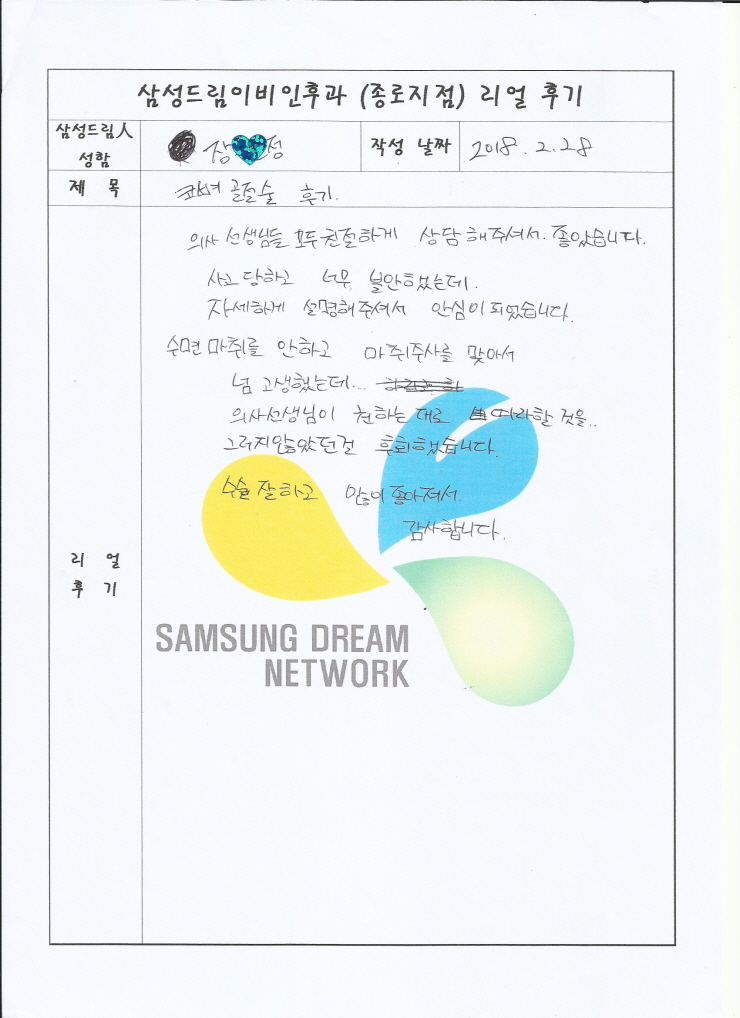 삼성드림이비인후과 (종로지점) 리얼 후기
삼성드림人
성함
장 정
작성 날짜
2018. 2. 28
제 목
코뼈 골절술 후기.
의사 선생님들 모두 친절하게 상담해주셔서. 좋았습니다.
사고 당하고 너무 불안했는데.
자세하게 설명해주셔서 안심이 되었습니다.
수면마취를 안하고 마취주사를 맞아서
넘 고생했는데...
의사선생님이 권하는 대로 따라할 것을..
그러지않았던걸 후회했습니다.
수술 잘하고 많이 좋아져서.
감사합니다.
리 얼
후 기
SAMSUNG DREAM
NETWORK